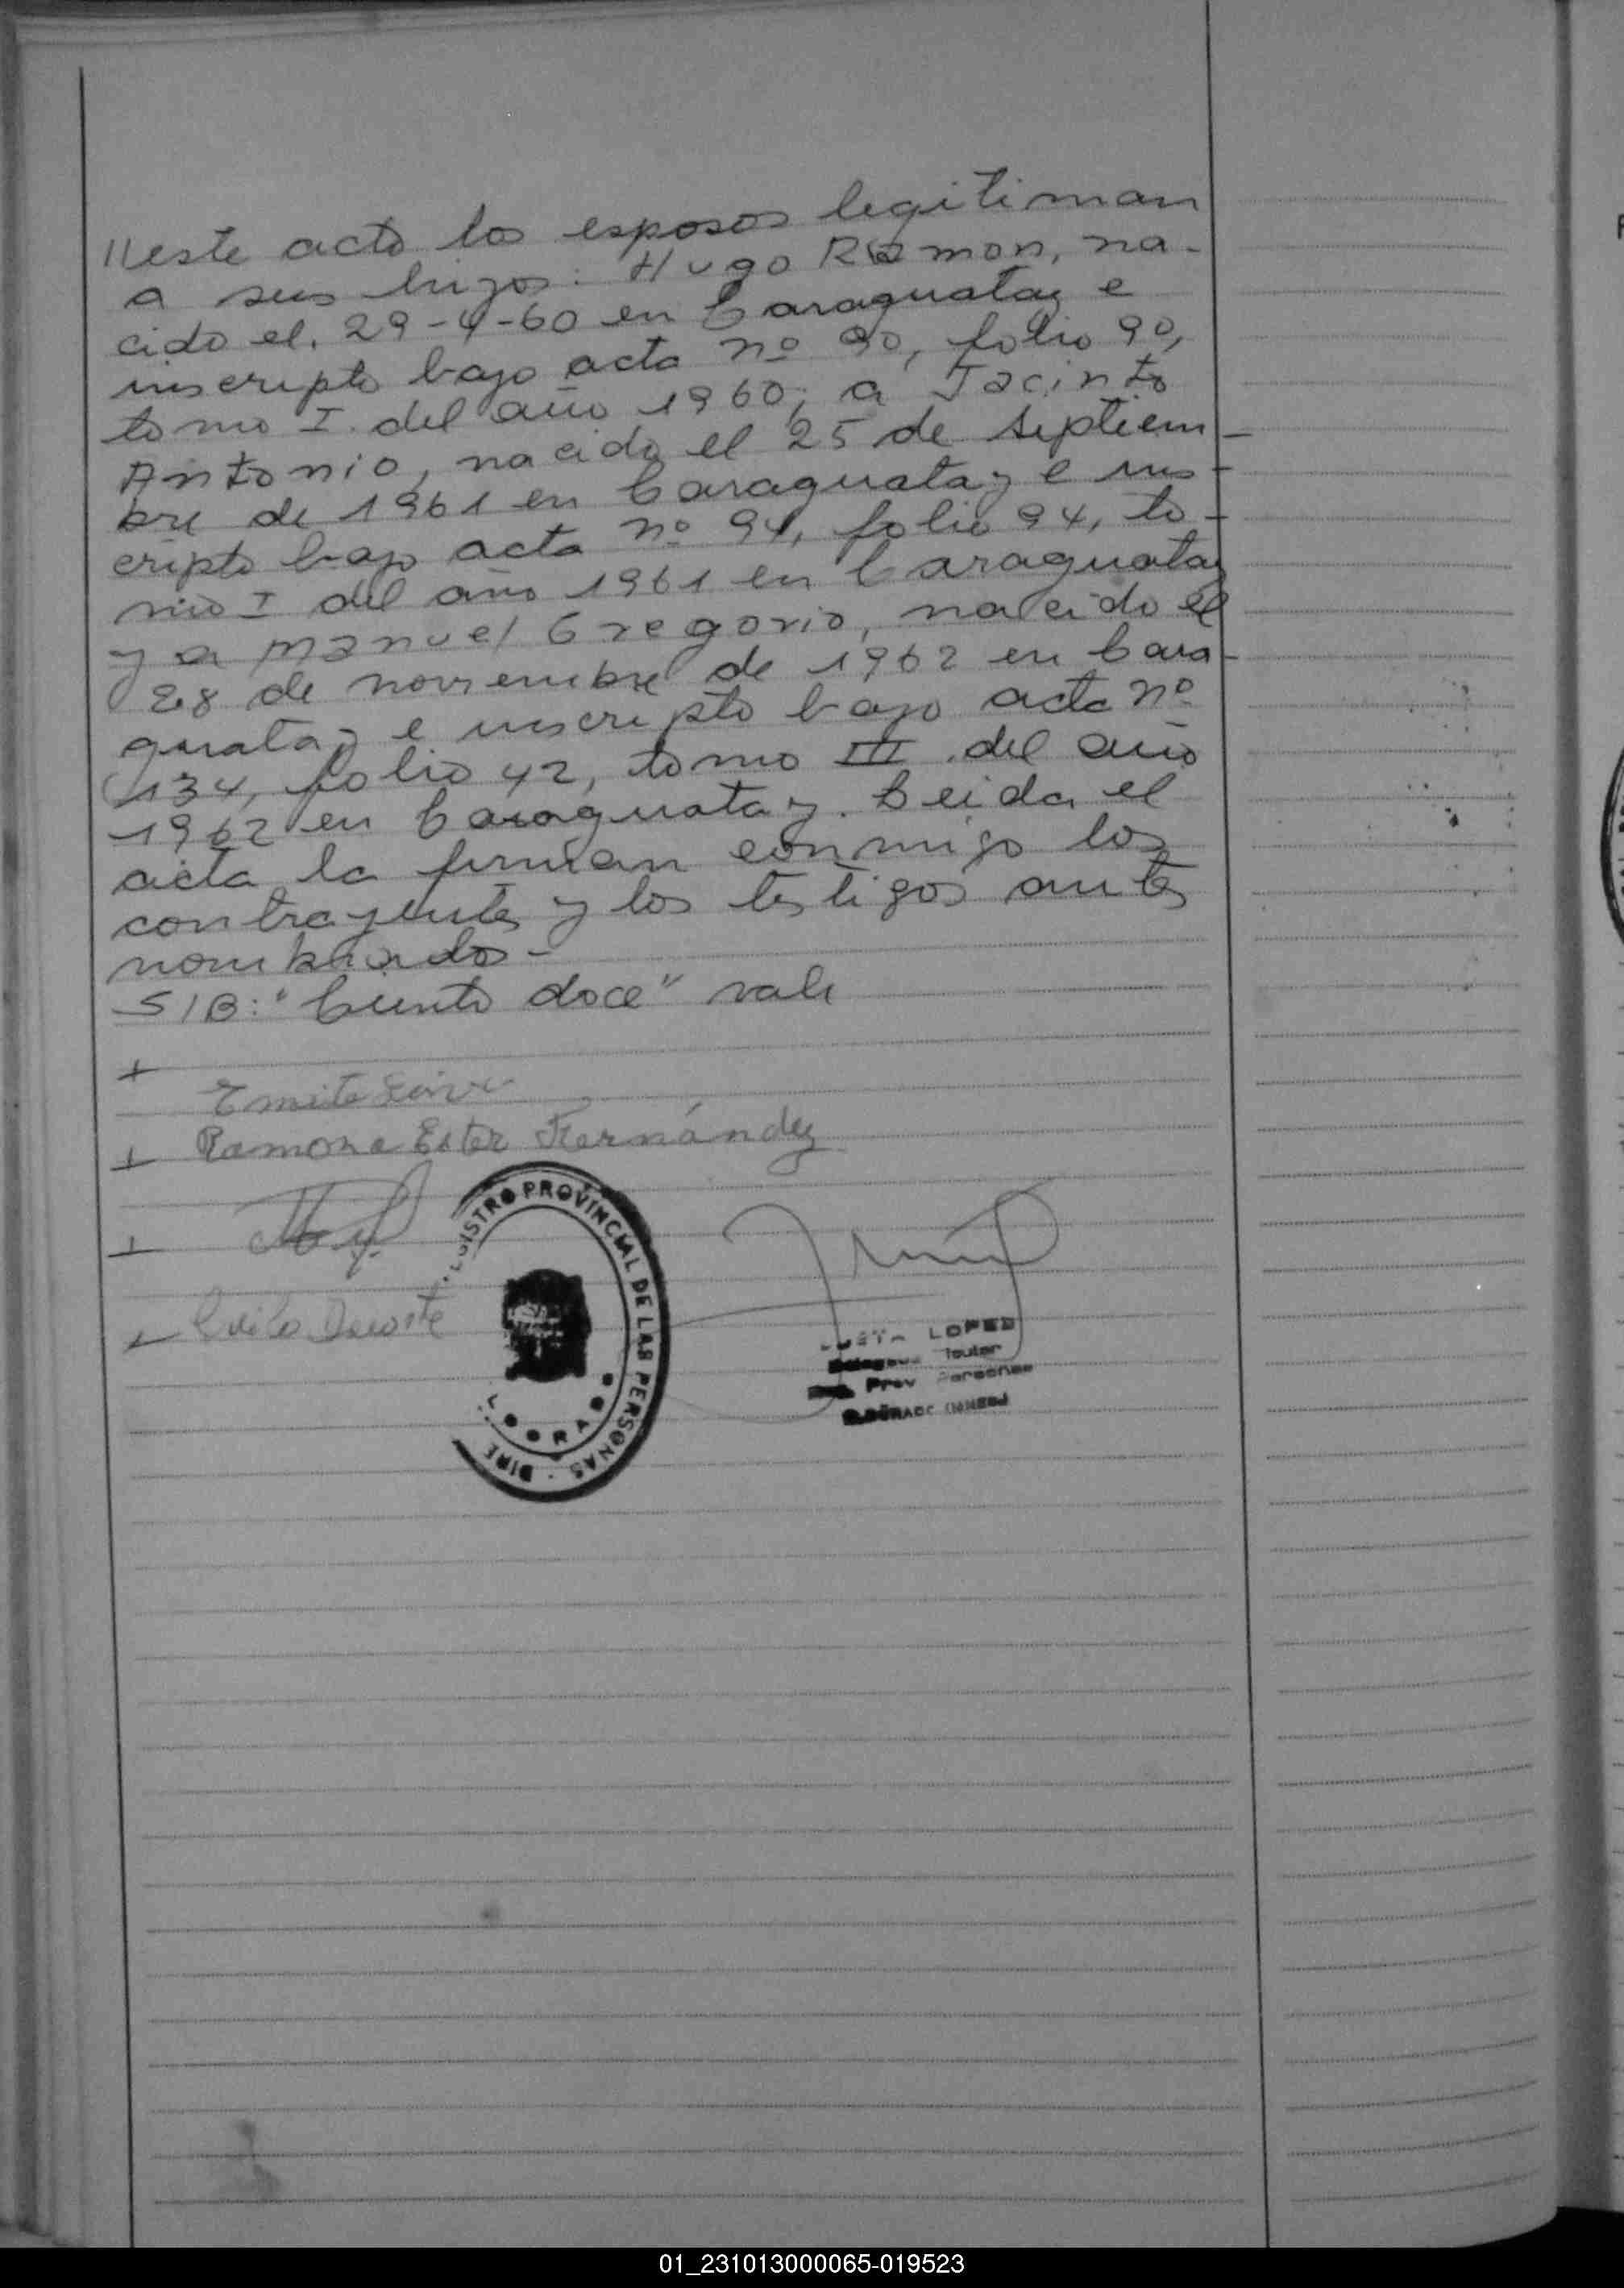 //este acto los esposos legitiman
a sus hijos: Hugo Ramon, na-
cido el. 29-4-60 en Caraguatay e
inscripto bajo acta nº 90, folio 90,
tomo I. del año 1960; a Jacinto
Antonio, nacido el 25 de septiem-
bre de 1961 en Caraguatay e ins-
cripto bajo acta nº 94, folio 94, to-
mo I del año 1961 en Caraguatay
y a Manuel Gregorio, nacido el
28 de noviembre de 1962 en Cara-
guatay e inscripto bajo acta nº
134, folio 42, tomo III del año
1962 en Caraguatay. Leida el
acta la firman conmigo los
contrayentes y los testigos antes
nombrados-
S/B: "Ciento doce" vale
+
+ Ramona Ester Fernández
+
+
REGISTRO PROVINCIAL DE LAS PERSONAS - DIRE
LOPEZ
Titular
Prov Personas